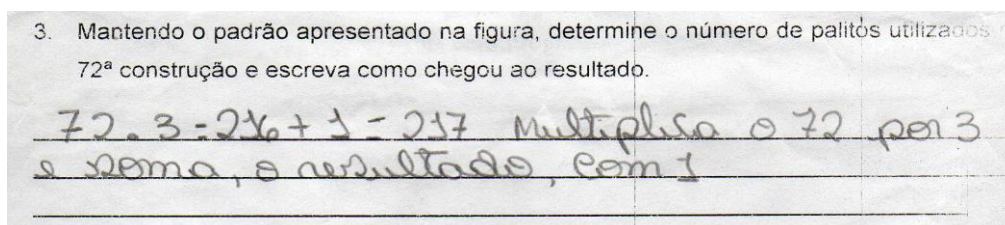 3. Mantendo o padrão apresentado na figura, determine o número de palitos utilizados
72ª construção e escreva como chegou ao resultado.
72 . 3 = 216 + 1 = 217 Multiplica o 72 por 3
e soma, o resultado, com 1